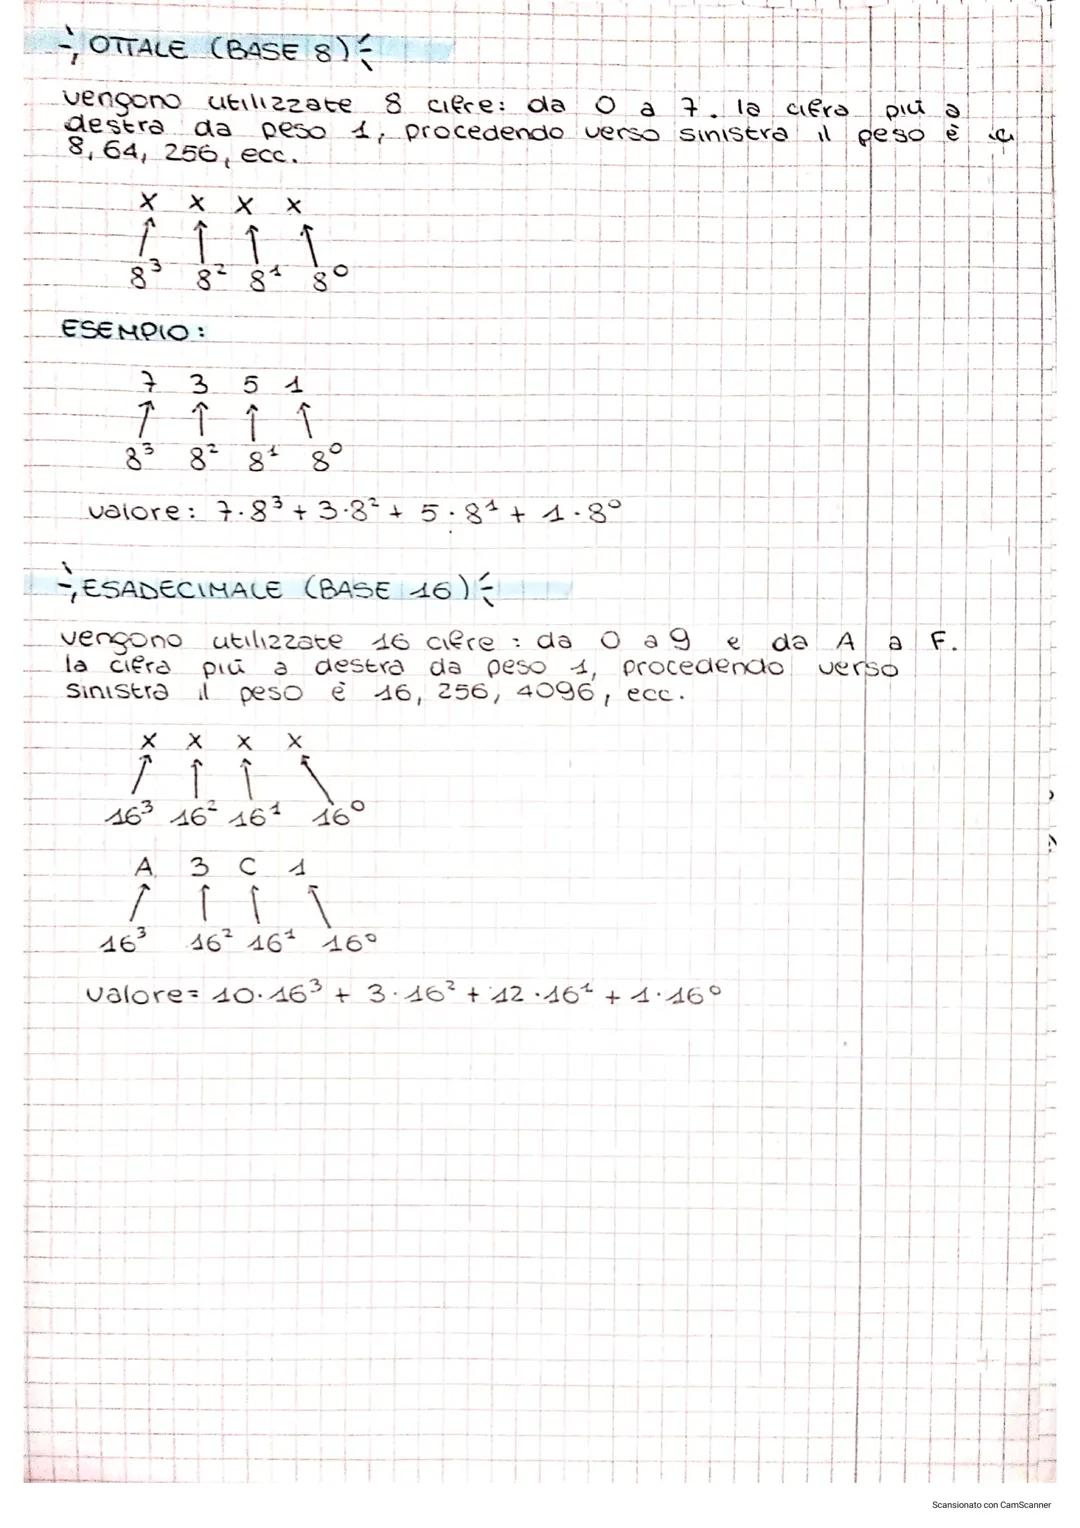 OTTALE (BASE 8)
vengono utilizzate 8 cifre: da 0 a 7. la cifra più a
destra da peso 1, procedendo verso sinistra il peso è
8, 64, 256, ecc.
X X X X
8³ 8² 8¹ 8⁰
ESEMPIO:
7 3 5 1
8³ 8² 8¹ 8⁰
valore: 7·8³ + 3·8² + 5·8¹ + 1·8⁰
ESADECIMALE (BASE 16)
vengono utilizzate 16 cifre: da 0 a 9 e da A a F.
la cifra più a destra da peso 1, procedendo verso
sinistra il peso è 16, 256, 4096, ecc.
X X X X
16³ 16² 16¹ 16⁰
A 3 C 1
16³ 16² 16¹ 16⁰
valore= 10·16³ + 3·16² + 12·16¹ + 1·16⁰
Scansionato con CamScanner